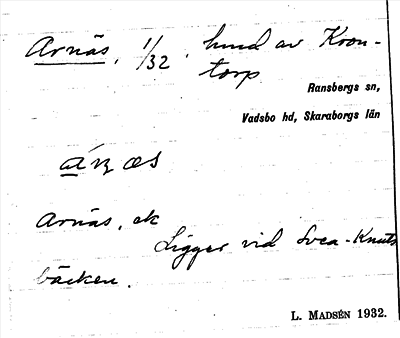 Arnäs, 1/32, hmd av Kron-
torp
Ransbergs sn,
Vadsbo hd, Skaraborgs län
Arnäs, ek
Ligger vid Svea-Knuts
bäcken.
L. MADSÉN 1932.